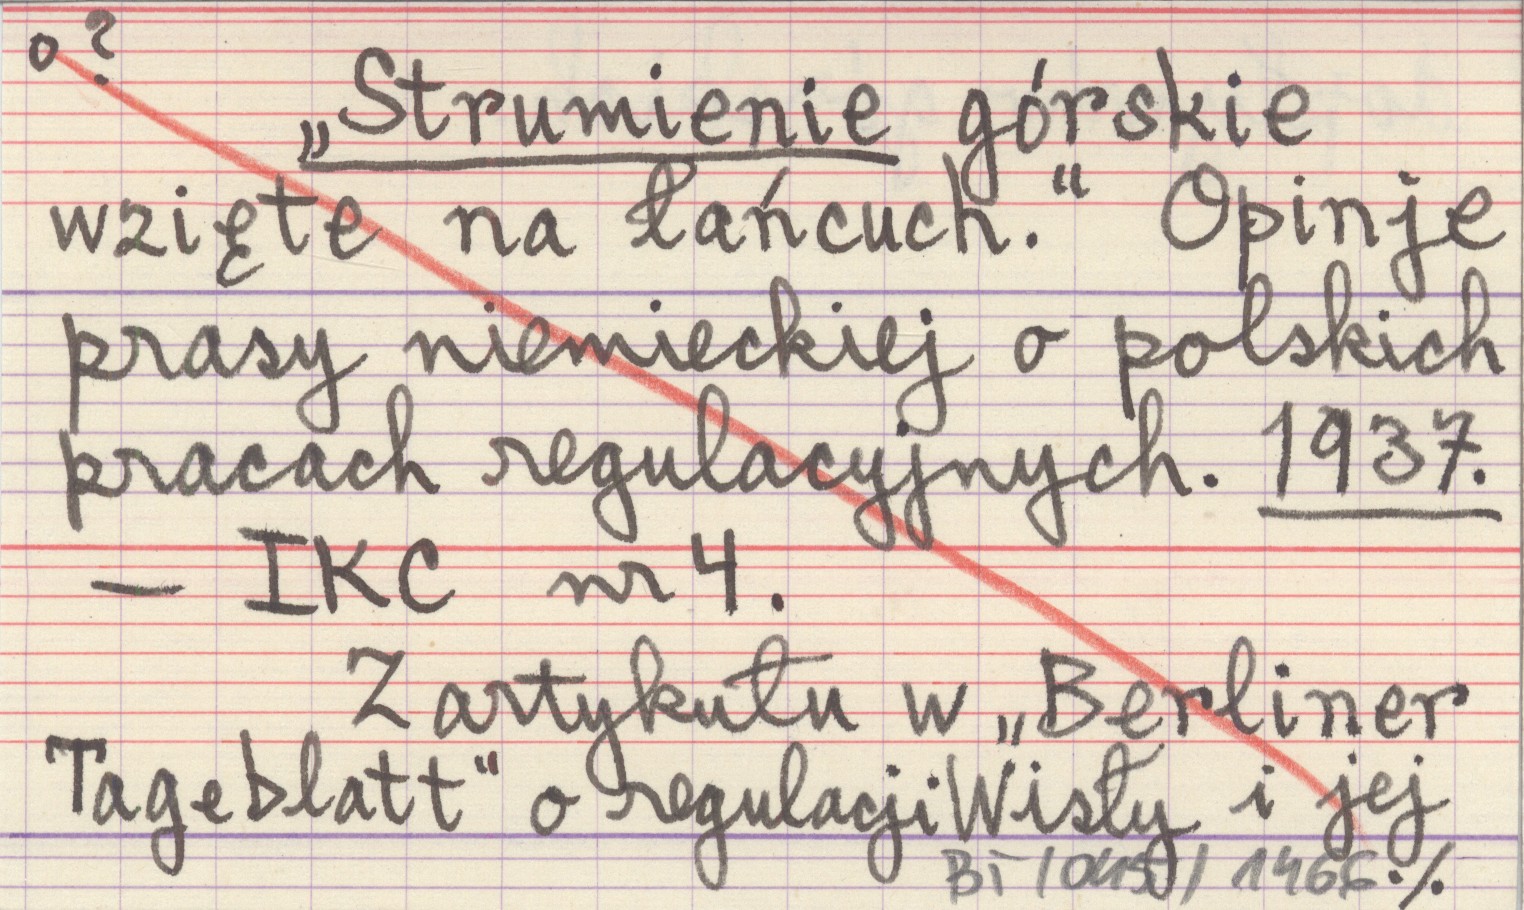 o?
„Strumienie górskie
wzięte na łańcuch.“ Opinje
prasy niemieckiej o polskich
pracach regulacyjnych. 1937.
— IKC nr 4.
Z artykułu w „Berliner
Tageblatt“ o regulacji Wisły i jej
1466 ./.